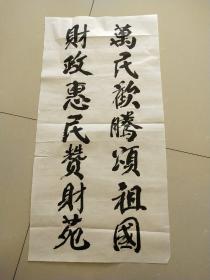 萬民歡騰頌祖國
財政惠民贊財苑